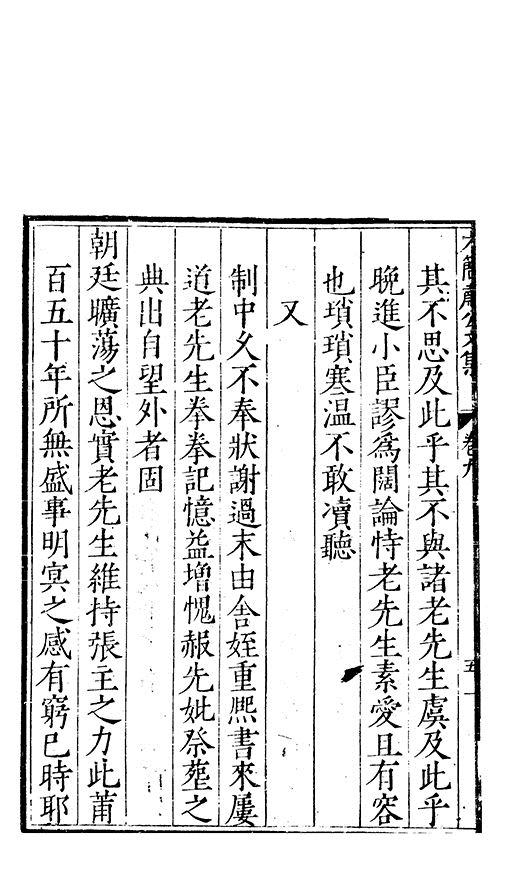 其不思及此乎其不與諸老先生虞及此乎
晚進小臣謬為闊論恃老先生素愛且有容
也瑣瑣寒溫不敢凟聽
又
制中久不奉狀謝過末由舍姪重熈書來屢
道老先生拳拳記憶益增愧赧先妣祭塟之
典出自望外者固
朝廷曠蕩之恩實老先生維持張主之力此莆
百五十年所無盛事明冥之感有窮已時耶
簡肅公文集
卷九
五